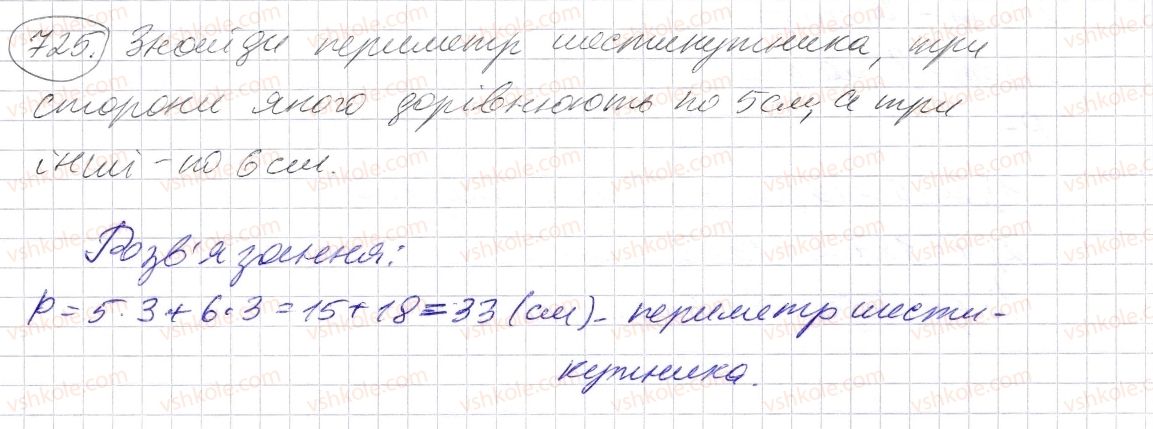 725. Знайди периметр шестикутника, три
сторони якого дорівнюють по 5 см, а три
інші – по 6 см.
Розв'язання:
P = 5·3 + 6·3 = 15 + 18 = 33 (см) – периметр шести-
кутника.